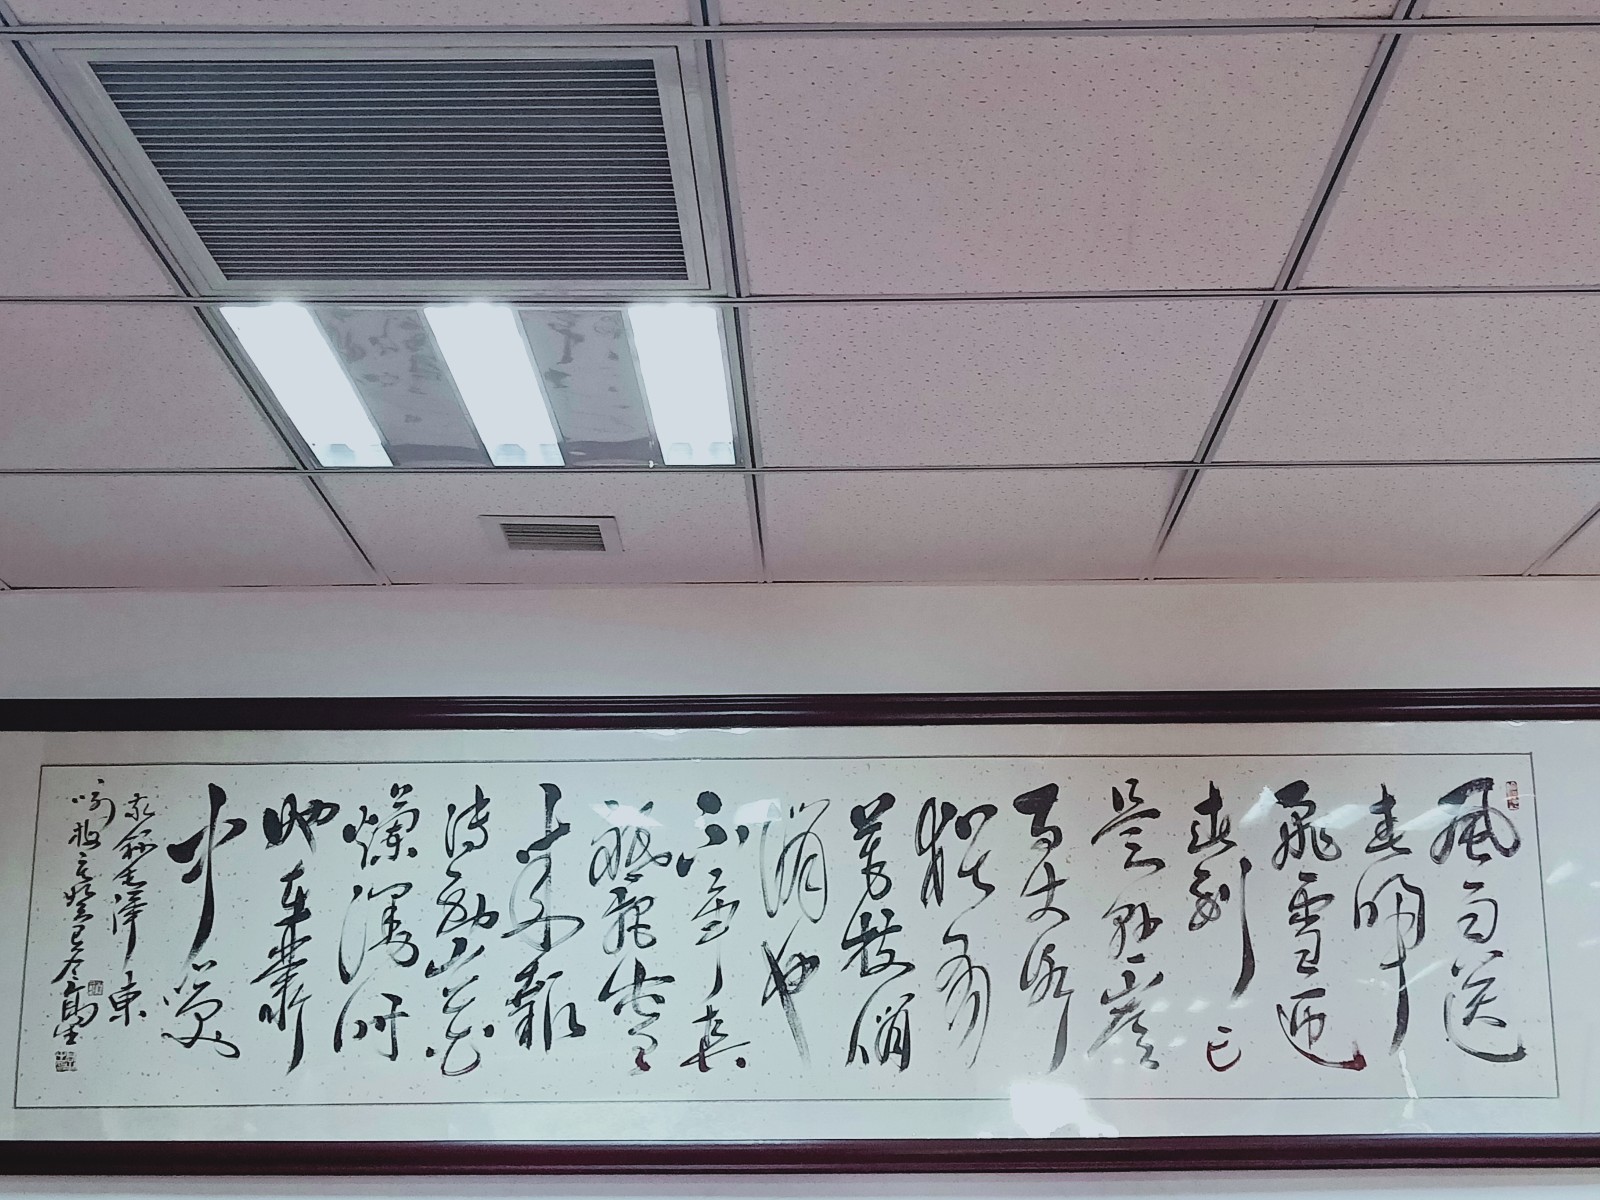 風雨送
春歸
飛雪迎
春到已
是懸崖
百丈冰
猶有
花枝俏
俏也
不爭春
祇把春
来報
待到山花
爛漫时
她在叢
中笑
毛澤東
咏梅 癸巳冬